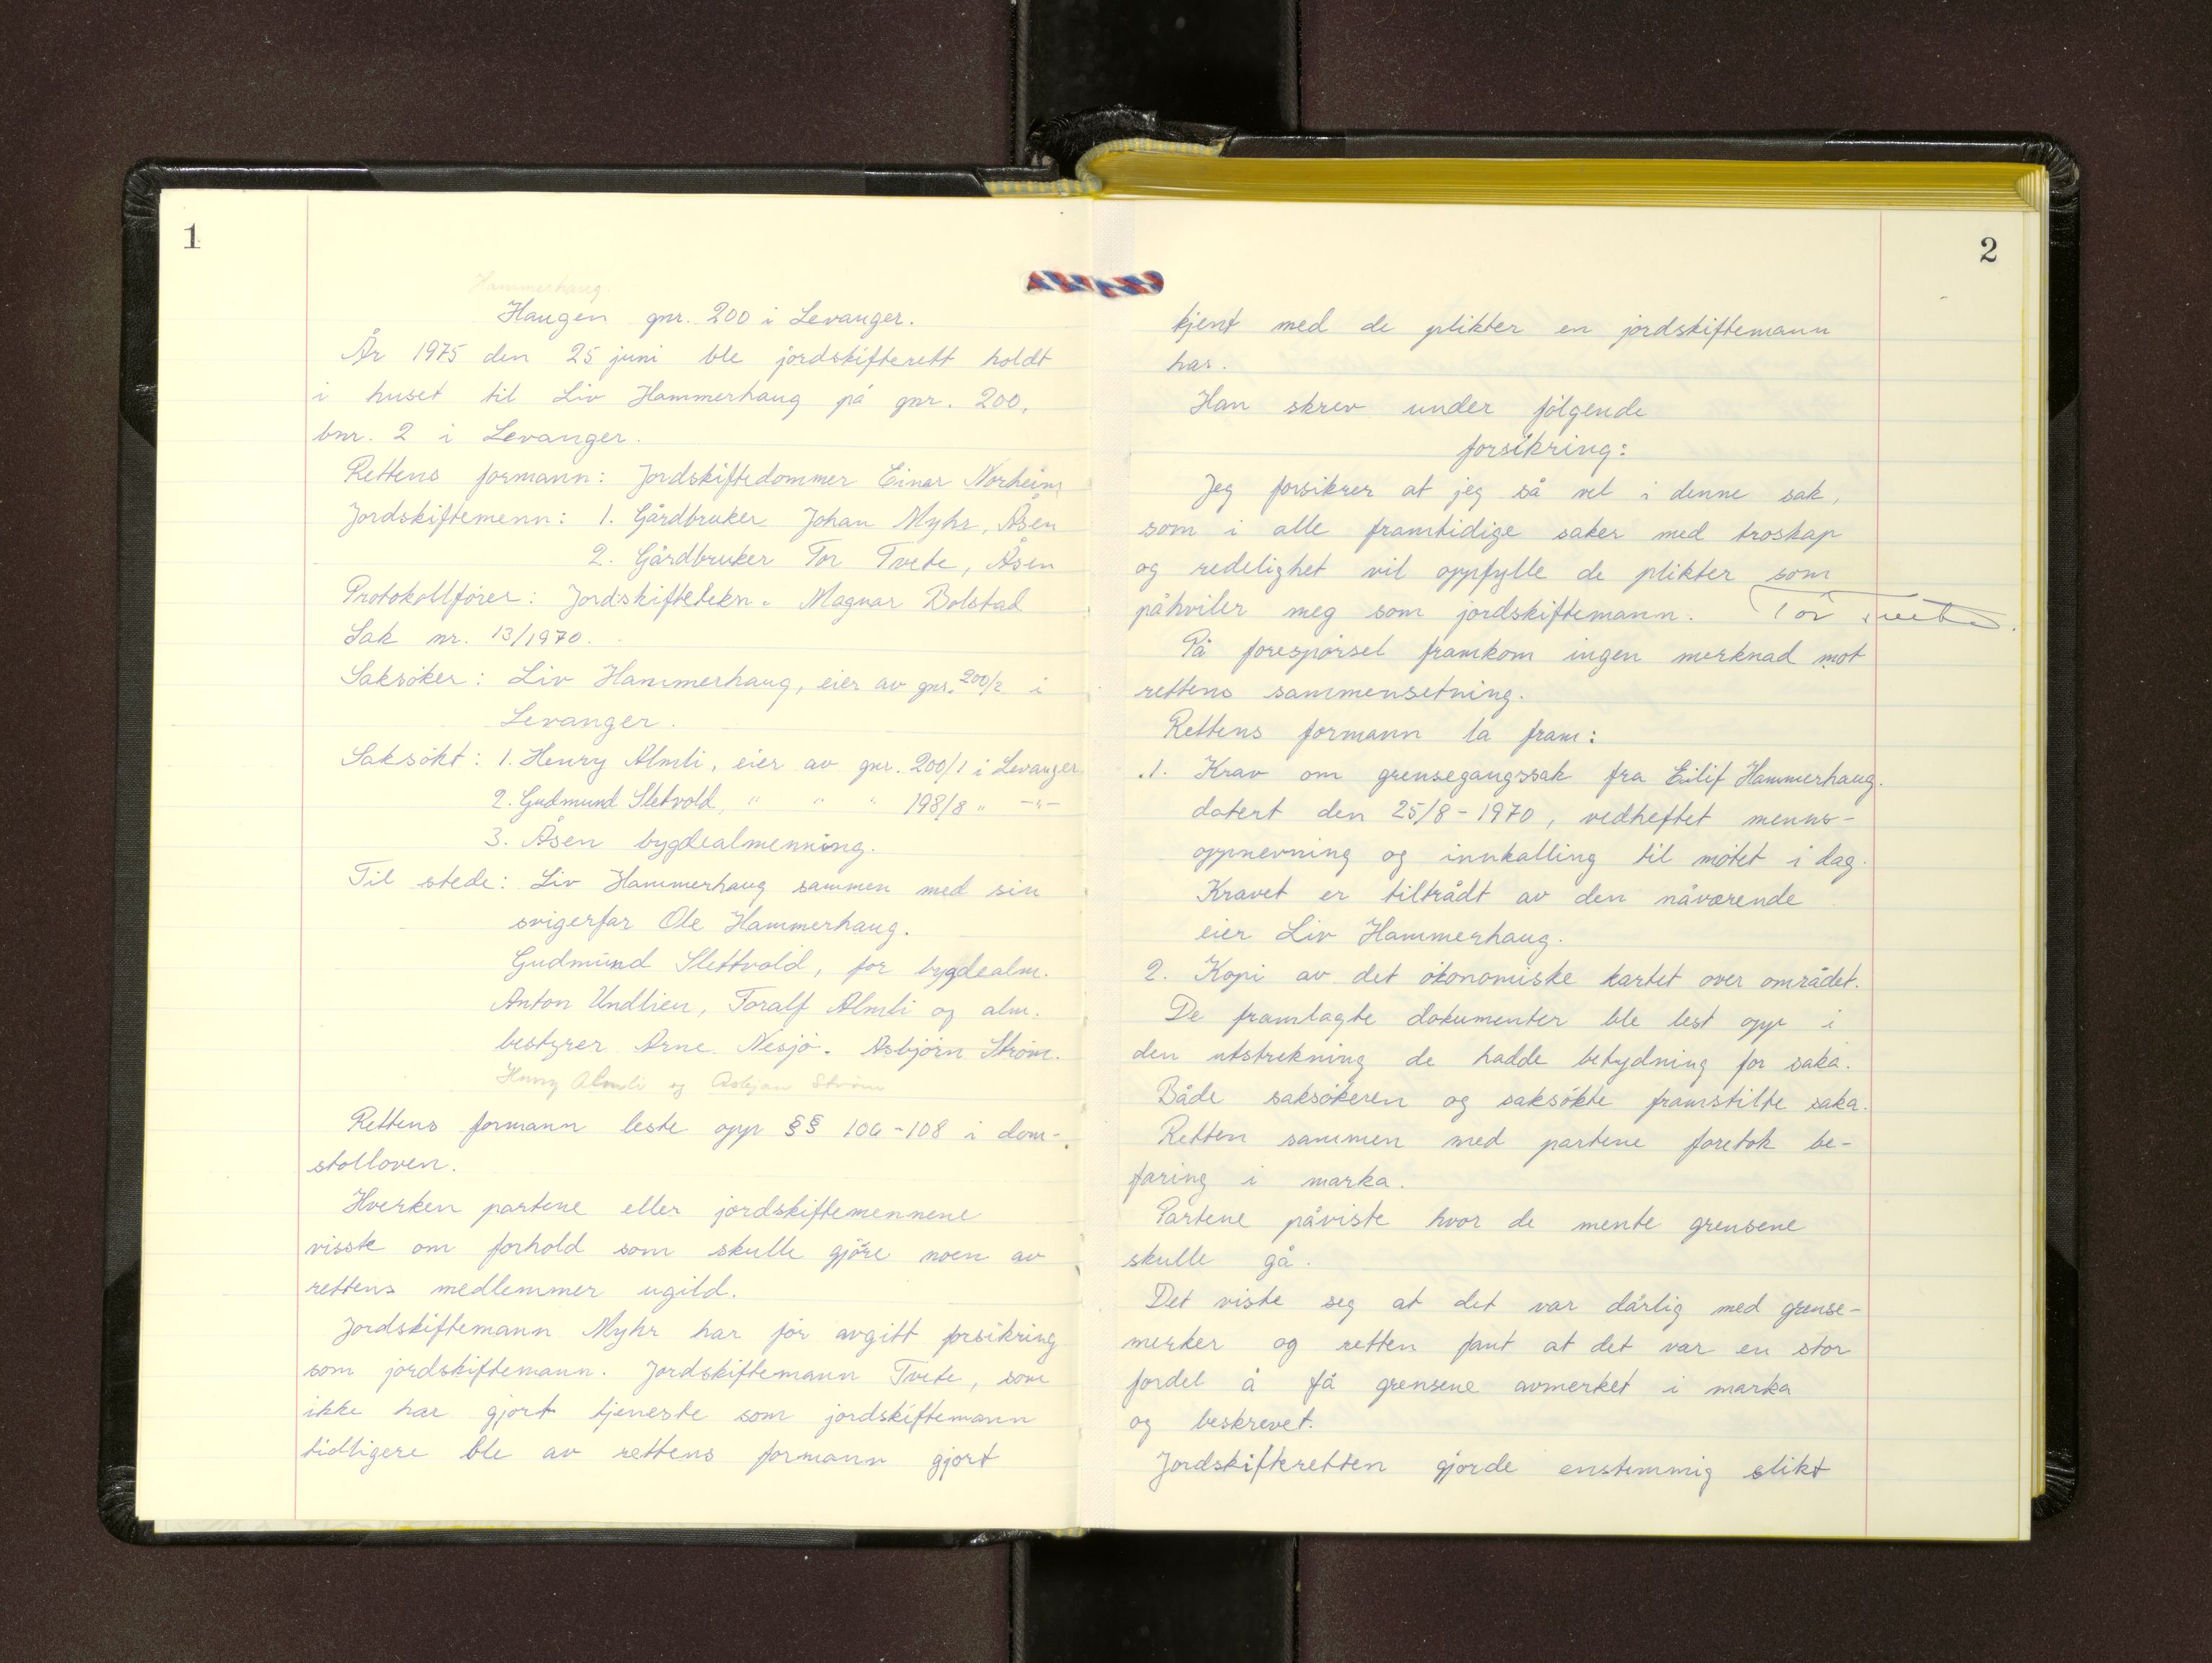 1
Hammerhaug.
Haugen gnr. 200 i Levanger.
År 1975 den 25 juni ble jordskifterett holdt
i huset til Liv Hammerhaug på gnr. 200,
bnr. 2 i Levanger.
Rettens formann: Jordskiftedommer Einar Norheim
Jordskiftemenn: 1. Gårdbruker Johan Myhr, Åsen
2. Gårdbruker Tor Tvete, Åsen
Protokollfører: Jordskiftetekn. Magnar Bolstad
Sak nr. 13/1970.
Saksøker: Liv Hammerhaug, eier av gnr. 200/2 i
Levanger.
Saksøkt: 1. Henry Almli, eier av gnr. 200/1 i Levanger
2. Gudmund Slettvold, " " " 198/8 " -"-
3. Åsen bygdealmenning.
Til stede: Liv Hammerhaug sammen med sin
svigerfar Ole Hammerhaug.
Gudmund Slettvold, for bygdealm.
Anton Undlien, Toralf Almli og alm.
bestyrer Arne Nesjø. Asbjørn Strøm.
Henry Almli og Asbjørn Strøm
Rettens formann leste opp §§ 106-108 i dom-
stolloven.
Hverken partene eller jordskiftemennene
visste om forhold som skulle gjøre noen av
rettens medlemmer ugild.
Jordskiftemann Myhr har før avgitt forsikring
som jordskiftemann. Jordskiftemann Tvete, som
ikke har gjort tjeneste som jordskiftemann
tidligere ble av rettens formann gjort
2
kjent med de plikter en jordskiftemann
har.
Han skrev under følgende
forsikring:
Jeg forsikrer at jeg så vel i denne sak,
som i alle framtidige saker med troskap
og redelighet vil oppfylle de plikter som
påhviler meg som jordskiftemann. Tor Tvete.
På forespørsel framkom ingen merknad mot
rettens sammensetning.
Rettens formann la fram:
1. Krav om grensegangssak fra Eilif Hammerhaug.
datert den 25/8-1970, vedheftet menns-
oppnevning og innkalling til møtet i dag.
Kravet er tiltrådt av den nåværende
eier Liv Hammerhaug.
2. Kopi av det økonomiske kartet over området.
De framlagte dokumenter ble lest opp i
den utstrekning de hadde betydning for saka.
Både saksøkeren og saksøkte framstilte saka.
Retten sammen med partene foretok be-
faring i marka.
Partene påviste hvor de mente grensene
skulle gå.
Det viste seg at det var dårlig med grense-
merker og retten fant at det var en stor
fordel å få grensene avmerket i marka
og beskrevet.
Jordskifteretten gjorde enstemmig slikt